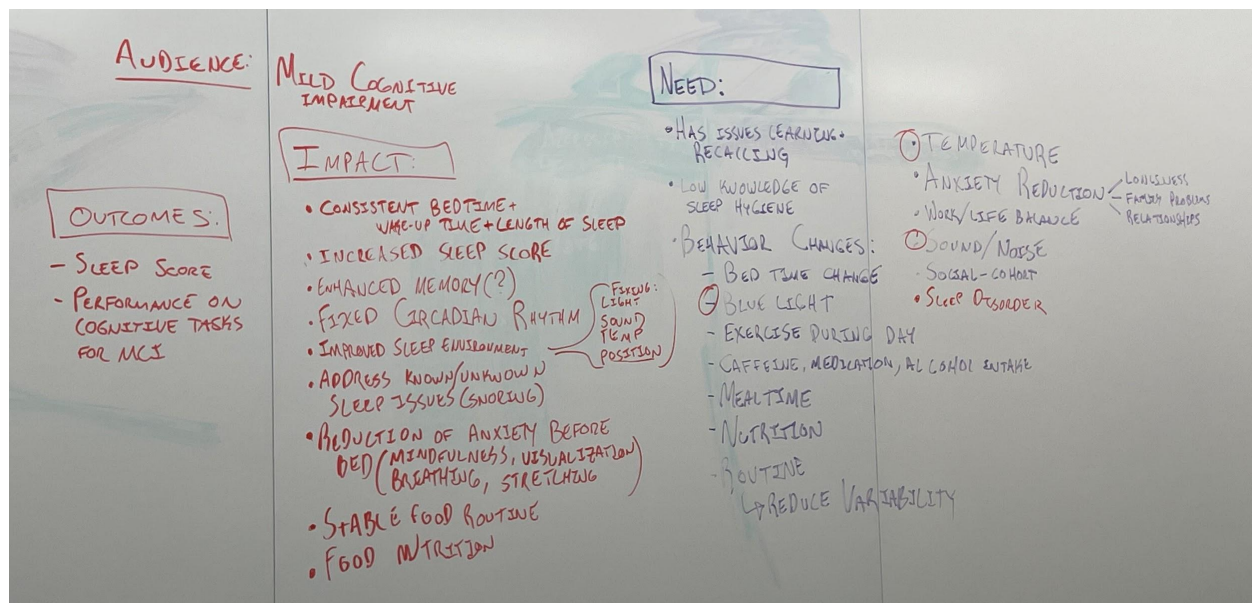 AUDIENCE:
MILD COGNITIVE
IMPAIRMENT
OUTCOMES:
- SLEEP SCORE
- PERFORMANCE ON
COGNITIVE TASKS
FOR MCI
IMPACT:
• CONSISTENT BEDTIME +
WAKE-UP TIME + LENGTH OF SLEEP
• INCREASED SLEEP SCORE
• ENHANCED MEMORY (?)
• FIXED CIRCADIAN RHYTHM
• IMPROVED SLEEP ENVIRONMENT
FIXING:
LIGHT
SOUND
TEMP
POSITION
• ADDRESS KNOWN/UNKNOWN
SLEEP ISSUES (SNORING)
• REDUCTION OF ANXIETY BEFORE
BED (MINDFULNESS, VISUALIZATION
BREATHING, STRETCHING)
• STABLE FOOD ROUTINE
• FOOD NUTRITION
NEED:
• HAS ISSUES LEARNING •
RECALLING
• LOW KNOWLEDGE OF
SLEEP HYGIENE
• BEHAVIOR CHANGES:
- BED TIME CHANGE
- BLUE LIGHT
- EXERCISE DURING DAY
- CAFFEINE, MEDICATION, ALCOHOL INTAKE
- MEALTIME
- NUTRITION
- ROUTINE
↳ REDUCE VARIABILITY
• TEMPERATURE
• ANXIETY REDUCTION
LONLINESS
FAMILY PROBLEMS
RELATIONSHIPS
• WORK/LIFE BALANCE
• SOUND/NOISE
• SOCIAL-COHORT
• SLEEP DISORDER